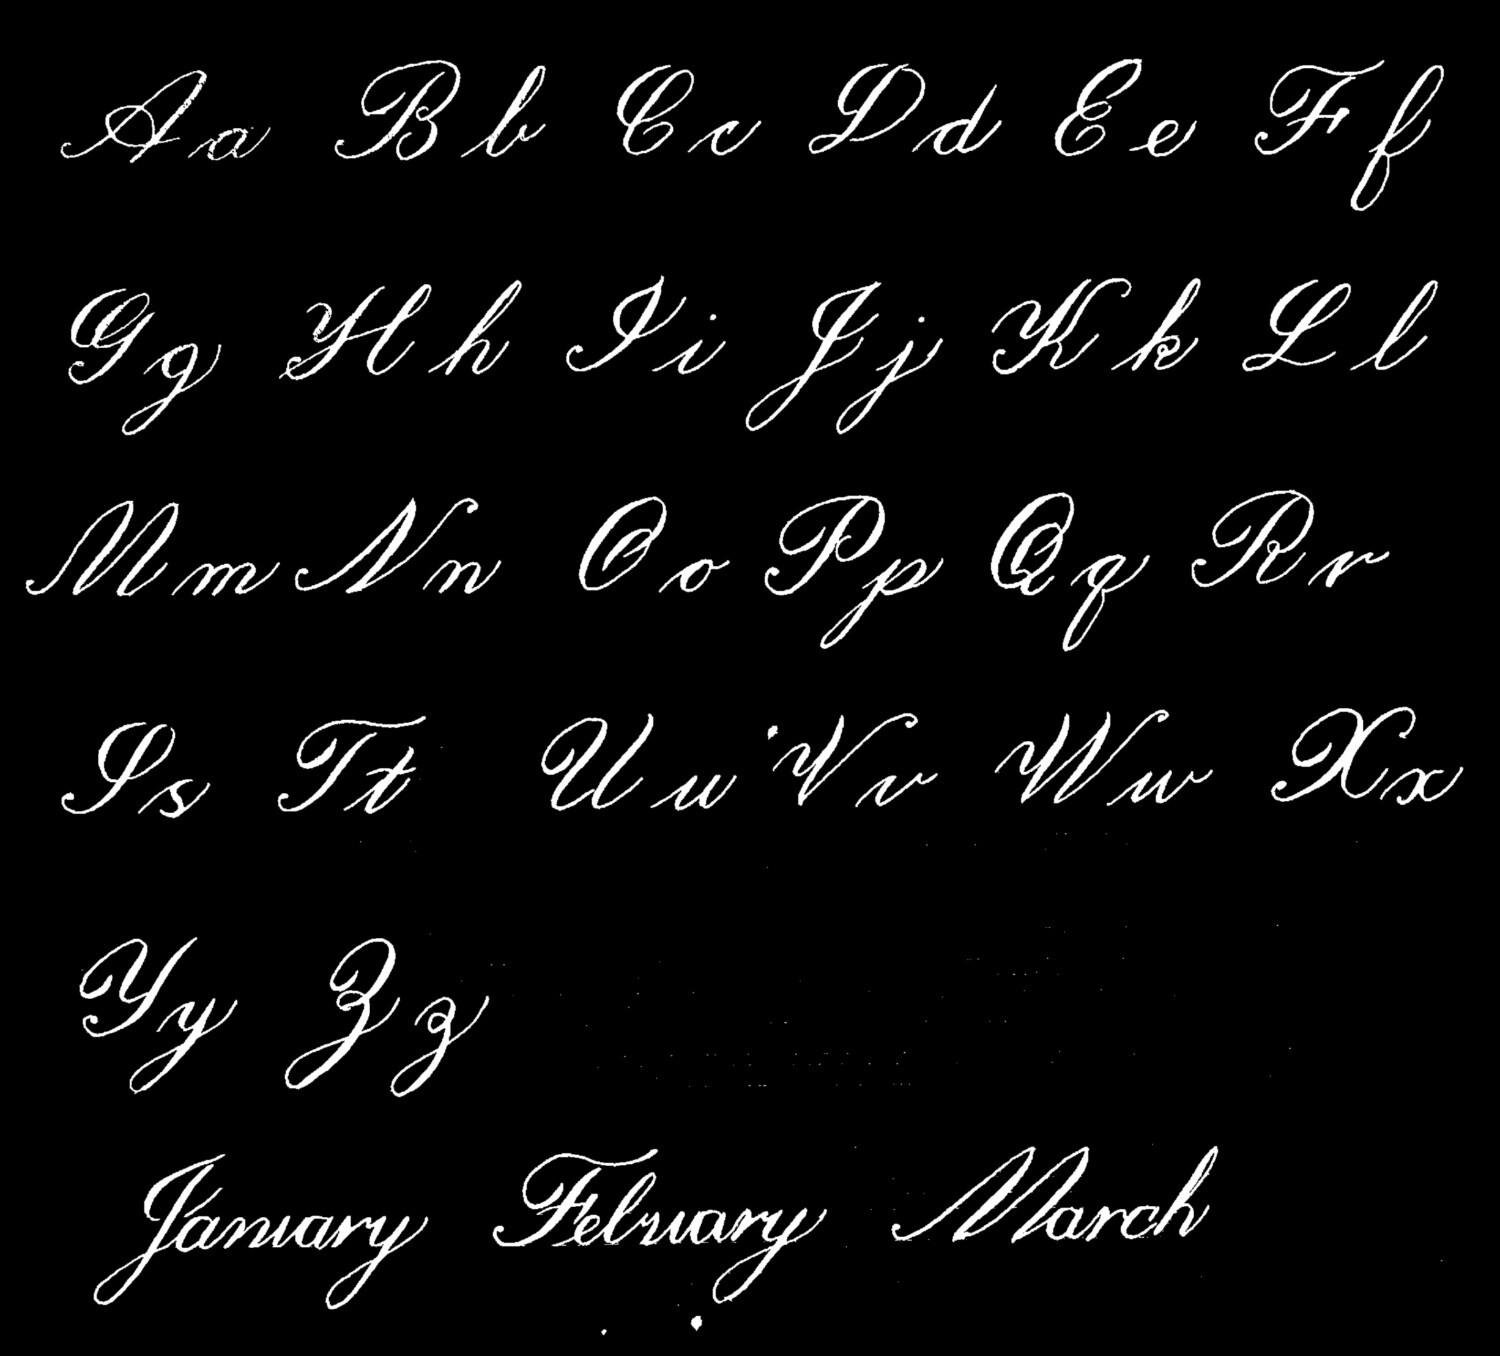 Aa Bb Cc Dd Ee Ff
Gg Hh Ii Jj Kk Ll
Mm Nn Oo Pp Qq Rr
Ss Tt Uu Vv Ww Xx
Yy Zz
January February March